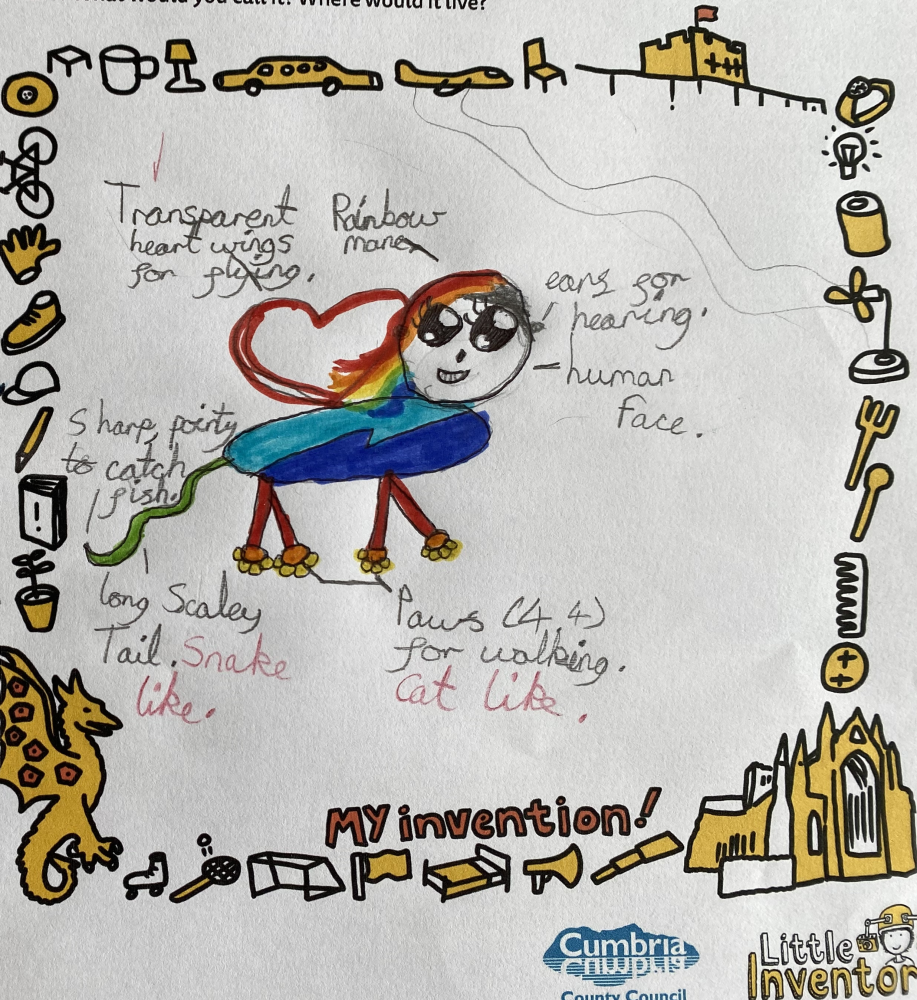 What would you call it? Where would it live?
Transparent
heart wings
for flying.
Rainbow
mane
ears for
hearing.
human
face.
Sharp, pointy
to catch
fish.
long Scaley
Tail. Snake
like.
Paws (4,4)
for walking.
Cat like.
My invention!
Cumbria
County Council
Little
Inventor